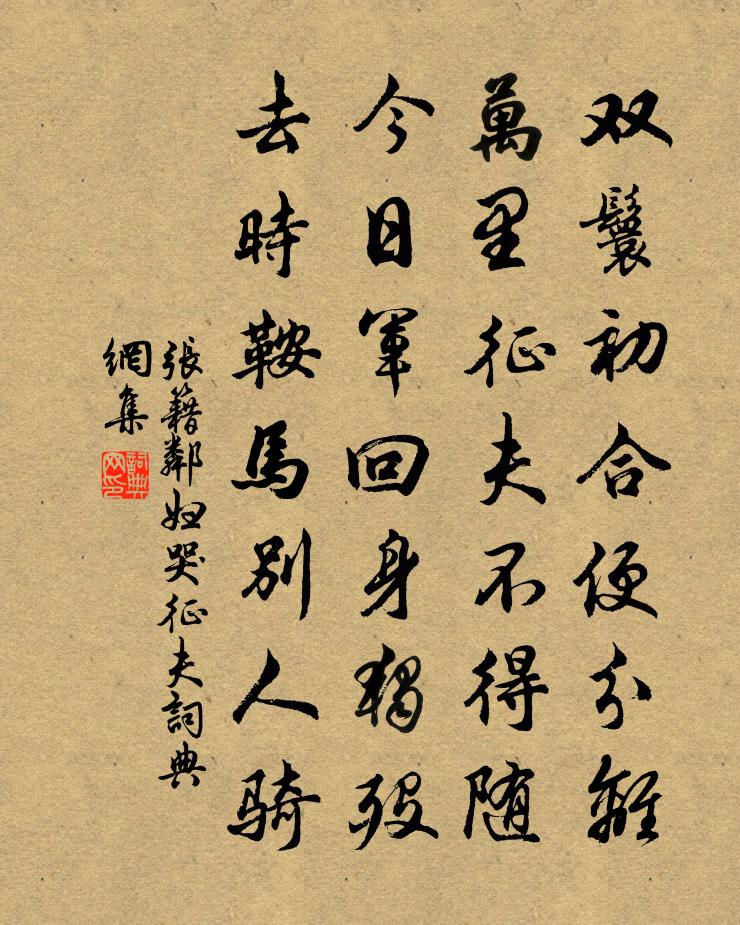 双鬟初合便分離
萬里征夫不得随
今日軍回身獨歿
去時鞍馬別人騎
張籍鄰婦哭征夫詞典
網集
詞典网印